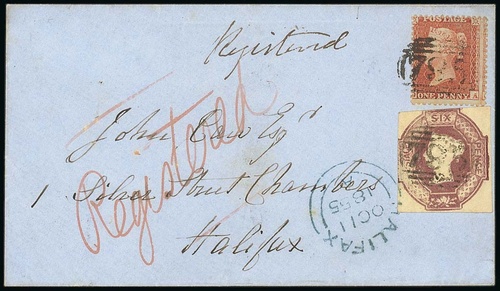 Registered
POSTAGE
ONE PENNY
A
Registered
John Carr Esqr
SIX
1 Silver Street Chambers
Halifax
HALIFAX
OC 11
1855